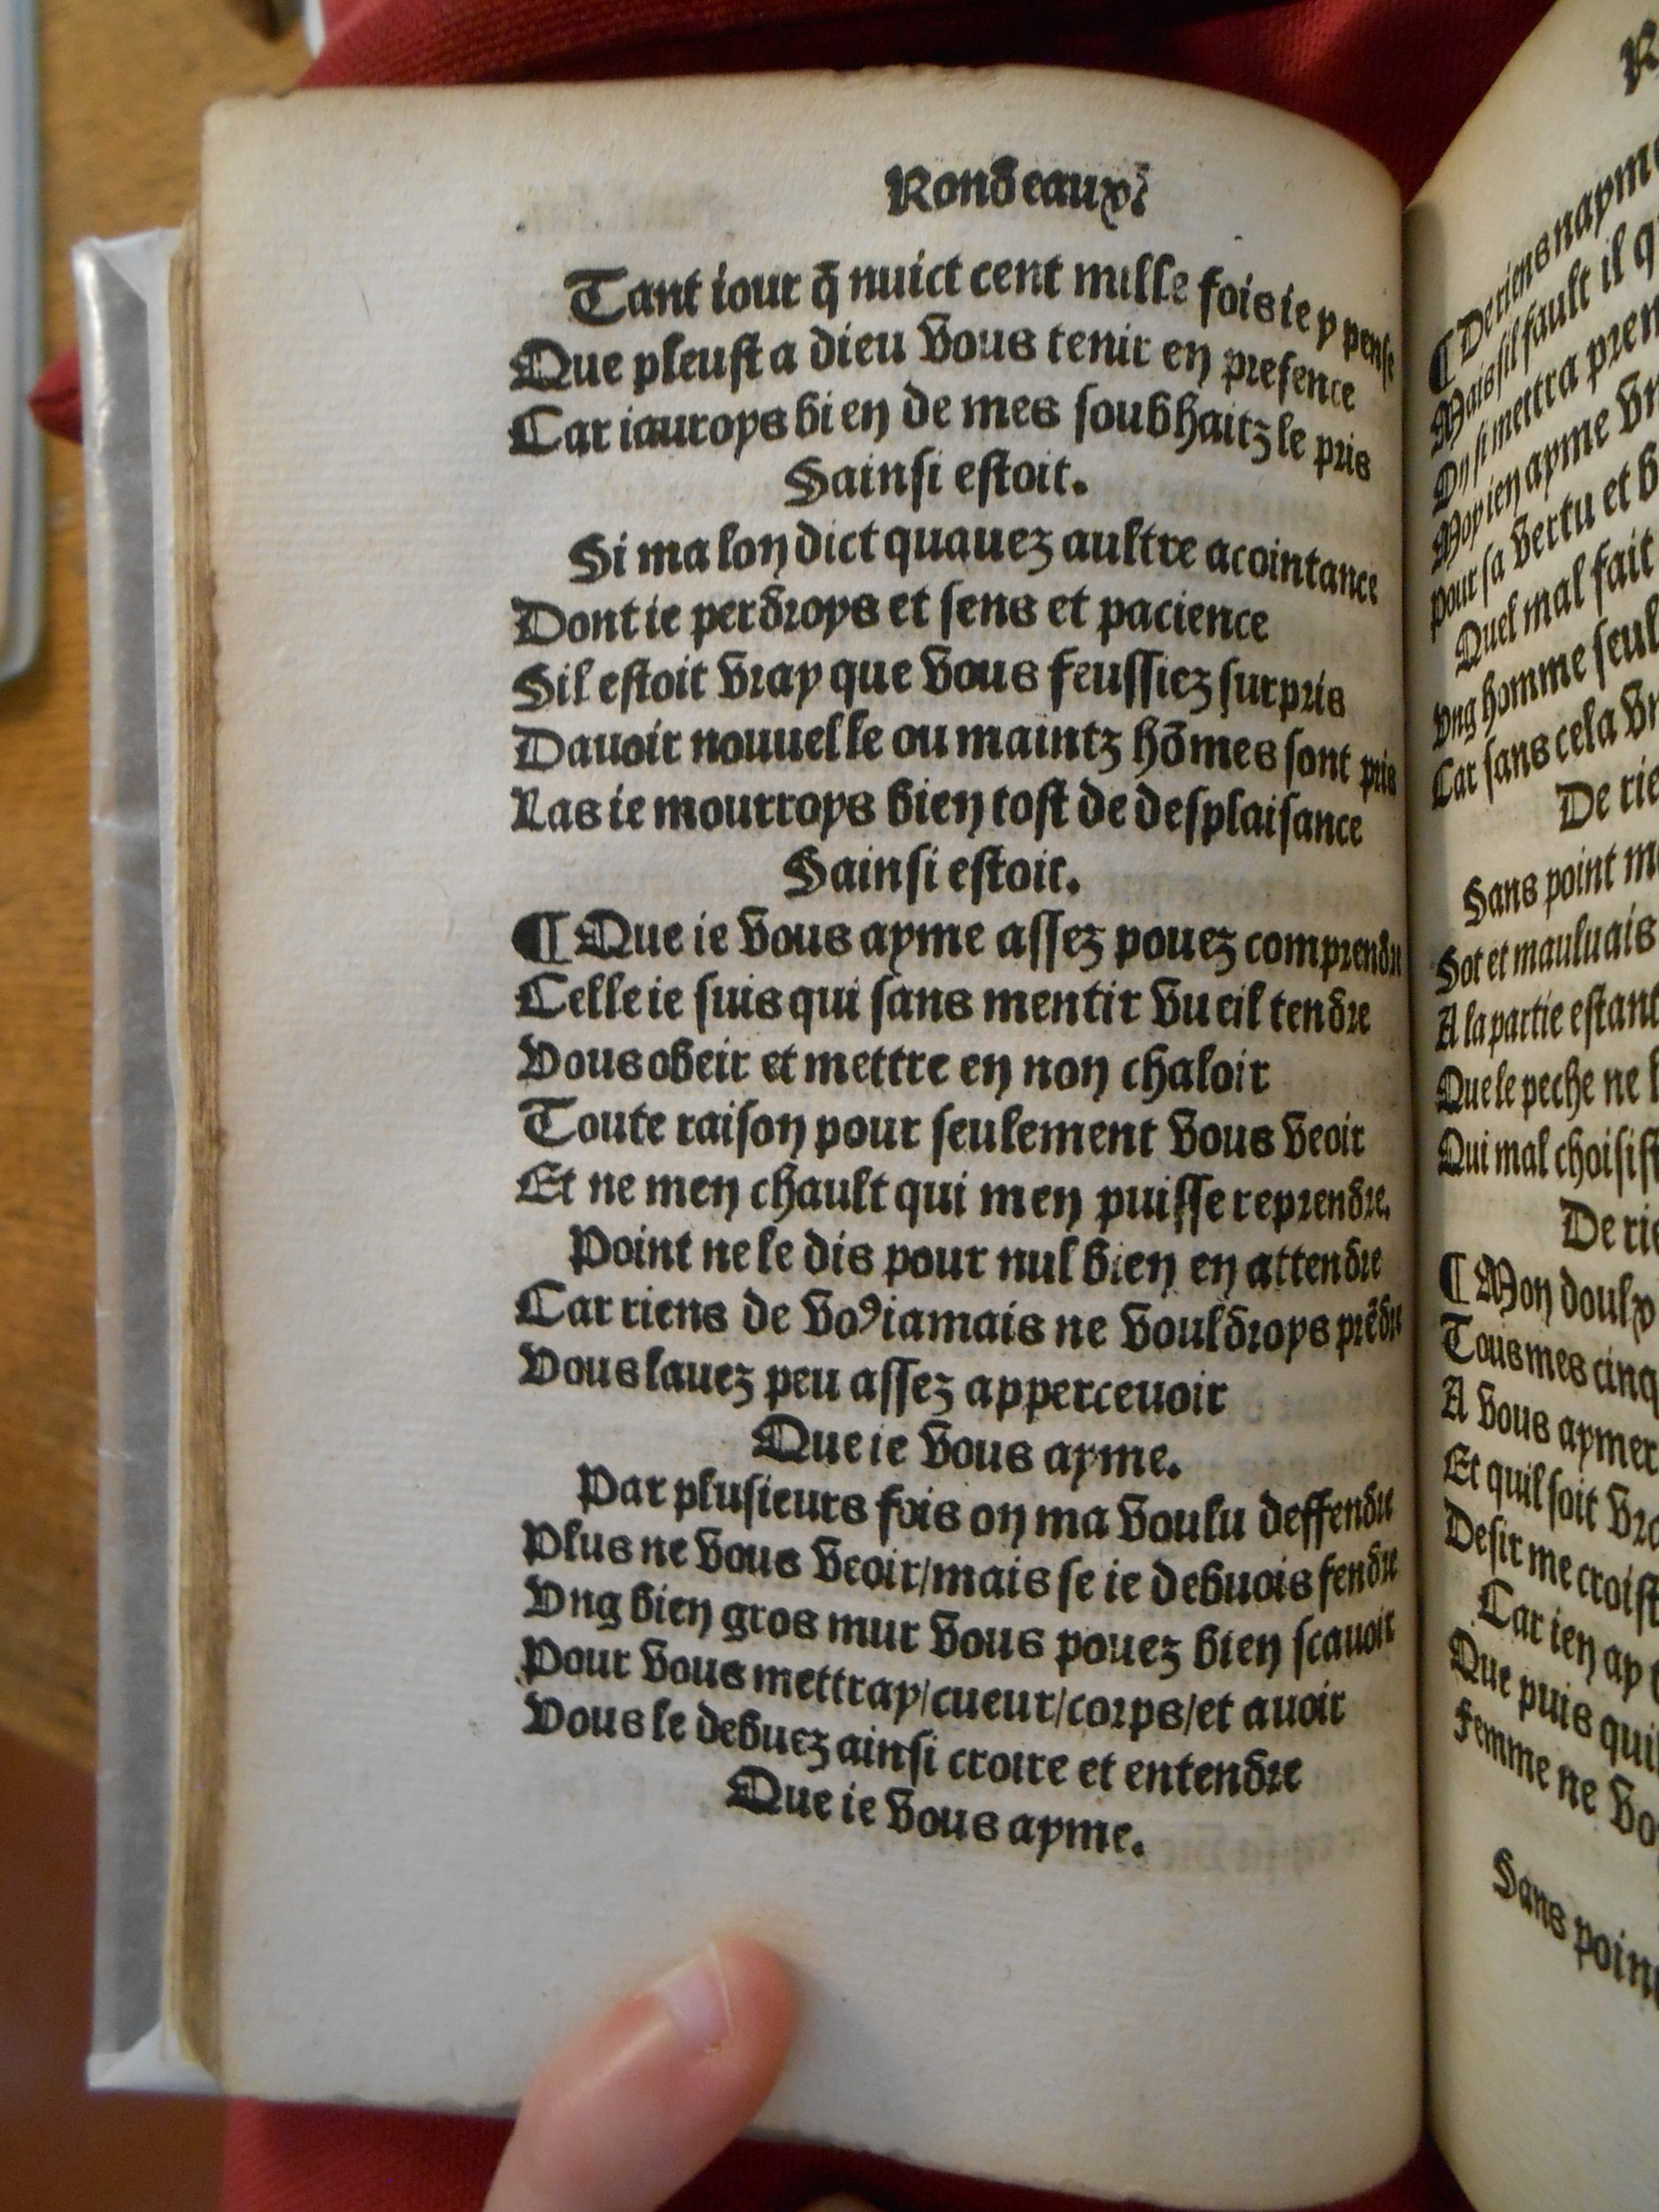 Rondeaux
Tant iour q̄ nuict cent mille fois ie y pense
Que pleust a dieu vous tenir en presence
Car iauroys bien de mes soubhaitz le pris
Sainsi estoit.
Si ma lon dict quauez aultre acointance
Dont ie perdroys et sens et pacience
Sil estoit vray que vous feussiez surpris
Dauoir nouuelle ou maintz hōmes sont pris
Las ie mourroys bien tost de desplaisance
Sainsi estoit.
¶ Que ie vous ayme assez pouez comprendre
Celle ie suis qui sans mentir vueil tendre
Vous obeir et mettre en non chaloir
Toute raison pour seulement vous veoir
Et ne men chault qui men puisse reprendre.
Point ne le dis pour nul bien en attendre
Car riens de voꝰ iamais ne vouldroys prēdre
Vous lauez peu assez apperceuoir
Que ie vous ayme.
Par plusieurs fois on ma voulu deffendre
Plus ne vous veoir/mais se ie debuois fendre
Vng bien gros mur vous pouez bien scauoir
Pour vous mettray/cueur/corps/et auoir
Vous le debuez ainsi croire et entendre
Que ie vous ayme.
¶ De riens nayme
Mais sil fault il
On si mettra
Moy ien ayme
pour sa vertu et
Quel mal fait
Vng homme seul
Car sans cela
De
Sans point
Sot et mauluais
A la partie estant
Que le peche ne
Qui mal
De
¶ Mon doulx
Tous mes cinq
A vous aymer
Et quil soit
Desir me
Car ien ay
Que puis
Femme ne
Sans